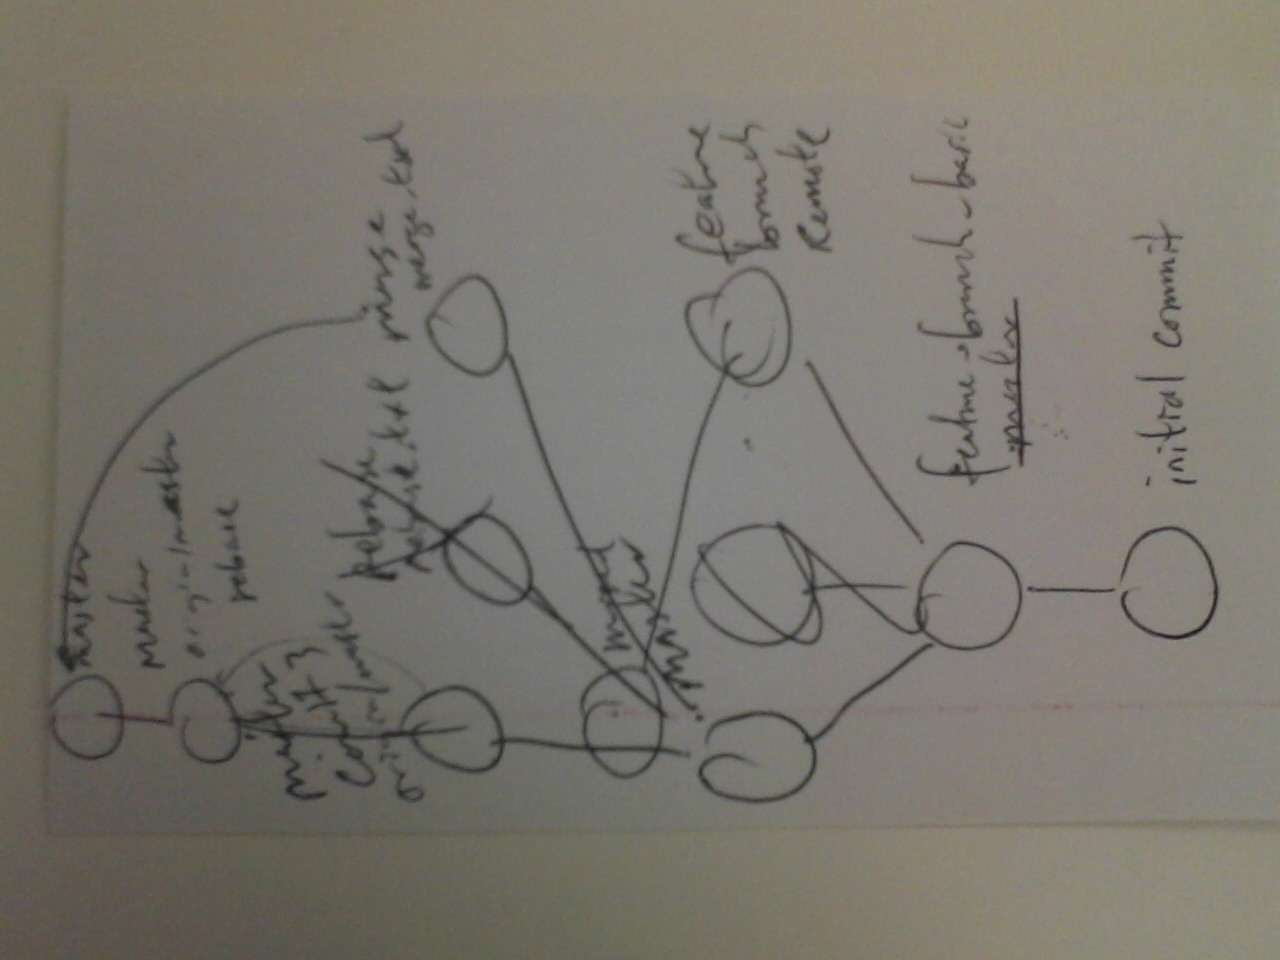 master
master
origin/master
rebase
master
commit 3
origin/master
rebase
rebase.txt
merge
merge.txt
feature
branch
remote
feature-branch-basic
master
initial commit